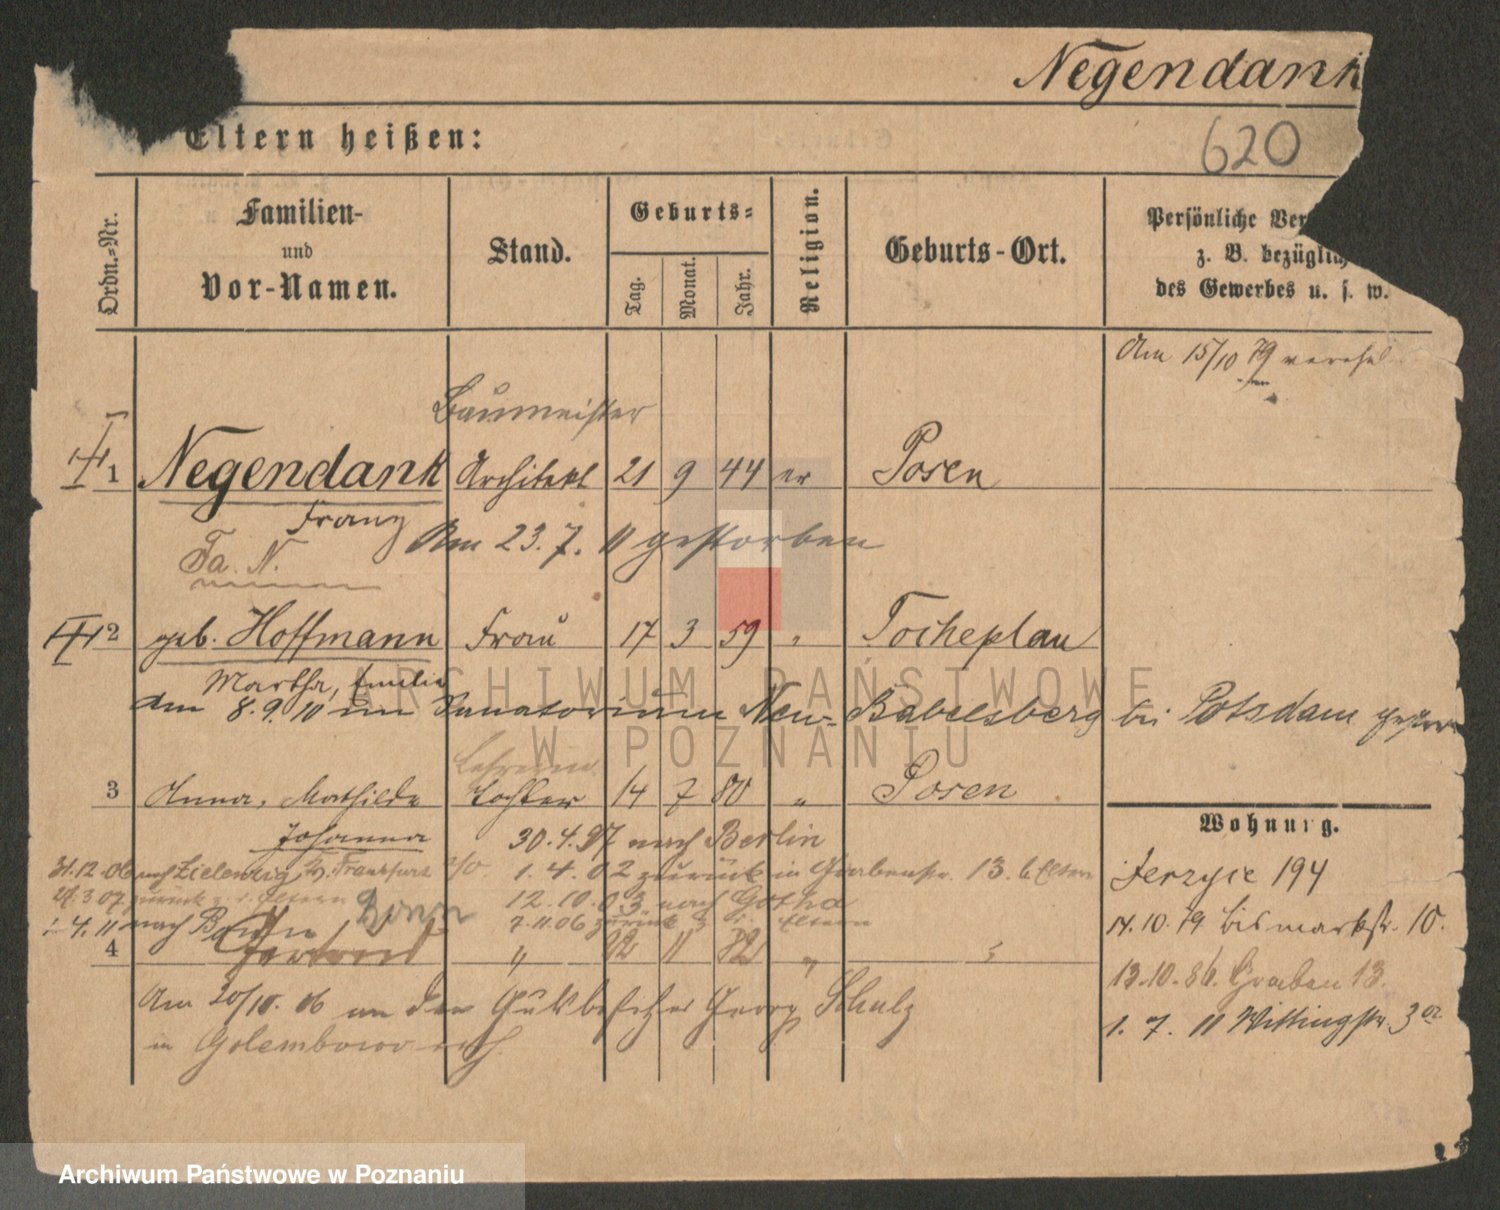 Negendank
Eltern heißen:
620
Ordn.-Nr.
Familien-
und
Vor-Namen.
Stand.
Geburts-
Tag.
Monat.
Jahr.
Religion.
Geburts-Ort.
Persönliche Ver
z. B. bezüglich
des Gewerbes u. s. w.
Am 15/10 79 verehel
Baumeister
1 Negendank Architekt 21 9 44 ev Posen
Franz
Am 23. 7. 11 gestorben
Fa. N.
2 geb. Hoffmann Frau 17 3 59 " Tocheplau
Martha, Emilie
Am 8. 9. 10 im Sanatorium Neu-Babelsberg bei Potsdam
Lehrerin
3 Anna, Mathilde Tochter 14 7 80 " Posen
Johanna
30. 4. 97 nach Berlin
Wohnung.
31.12.06 nach Zielenzig Frankfurt a/O. 1. 4. 02 zurück in Grabenstr. 13. b. Eltern
Jerzyce 194
27.3.07 zurück z. d. Eltern 12. 10. 03 nach Gotha
7. 11. 06 zurück z. d. Eltern
14. 10. 79 Bismarkstr. 10.
1. 4. 11 nach
4 Gertrud " 12 11 82 " "
13. 10. 86. Graben 13.
Am 20/10. 06 an den Gutsbesitzer Georg Schulz
1. 7. 11 Wittingstr. 3
in
ARCHIWUM PAŃSTWOWE
W POZNANIU
Archiwum Państwowe w Poznaniu